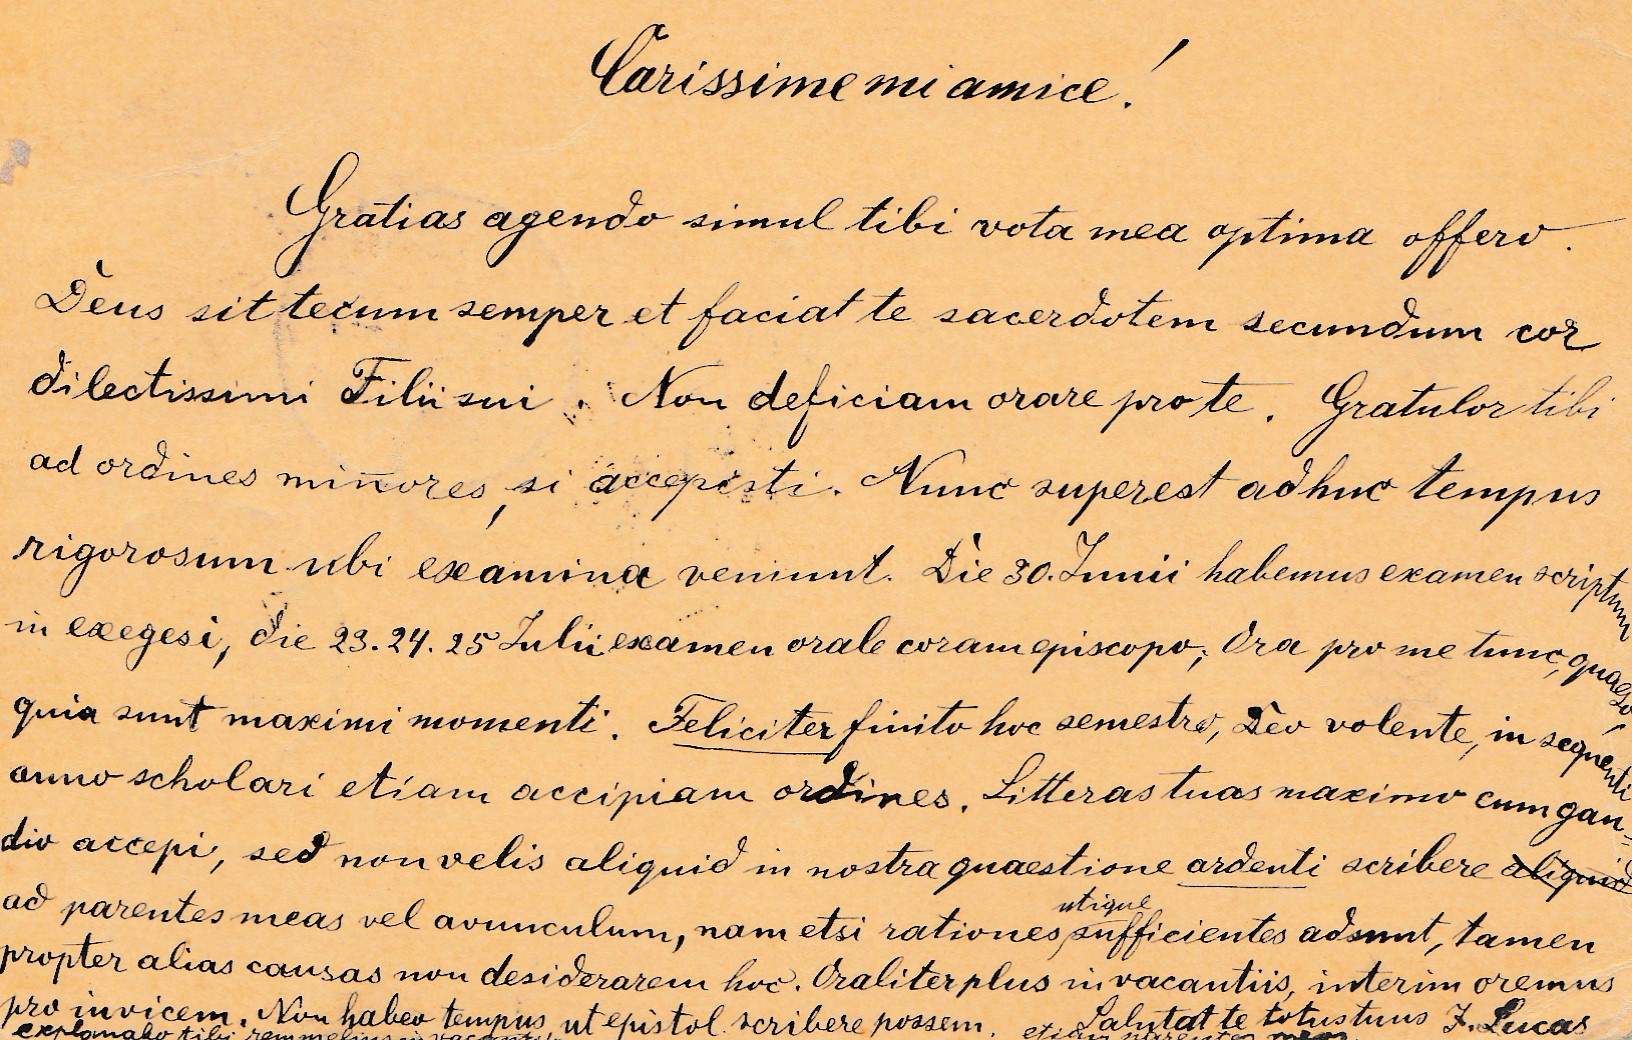 Carissime mi amice!
Gratias agendo simul tibi vota mea optima offero.
Deus sit tecum semper et faciat te sacerdotem secundum cor
dilectissimi Filii sui. Non deficiam orare pro te. Gratulor tibi
ad ordines minores, si accepisti. Nunc superest adhuc tempus
rigorosum ubi examina veniunt. Die 30. Junii habemus examen scriptum
in exegesi, die 23. 24. 25 Julii examen orale coram episcopo; Ora pro me tunc, quaeso,
quia sunt maximi momenti. Feliciter finito hoc semestro, Deo volente, in sequenti
anno scholari etiam accipiam ordines. Litteras tuas maximo cum gau-
dio accepi, sed non velis aliquid in nostra quaestione ardenti scribere aliquid
ad parentes meas vel avunculum, nam etsi rationes utique sufficientes adsunt, tamen
propter alias causas non desiderarem hoc. Oraliter plus in vacantiis, interim oremus
pro invicem. Non habeo tempus, ut epistol. scribere possem. Salutat te totus tuus J. Lucas
explanabo tibi etiam parentes meos